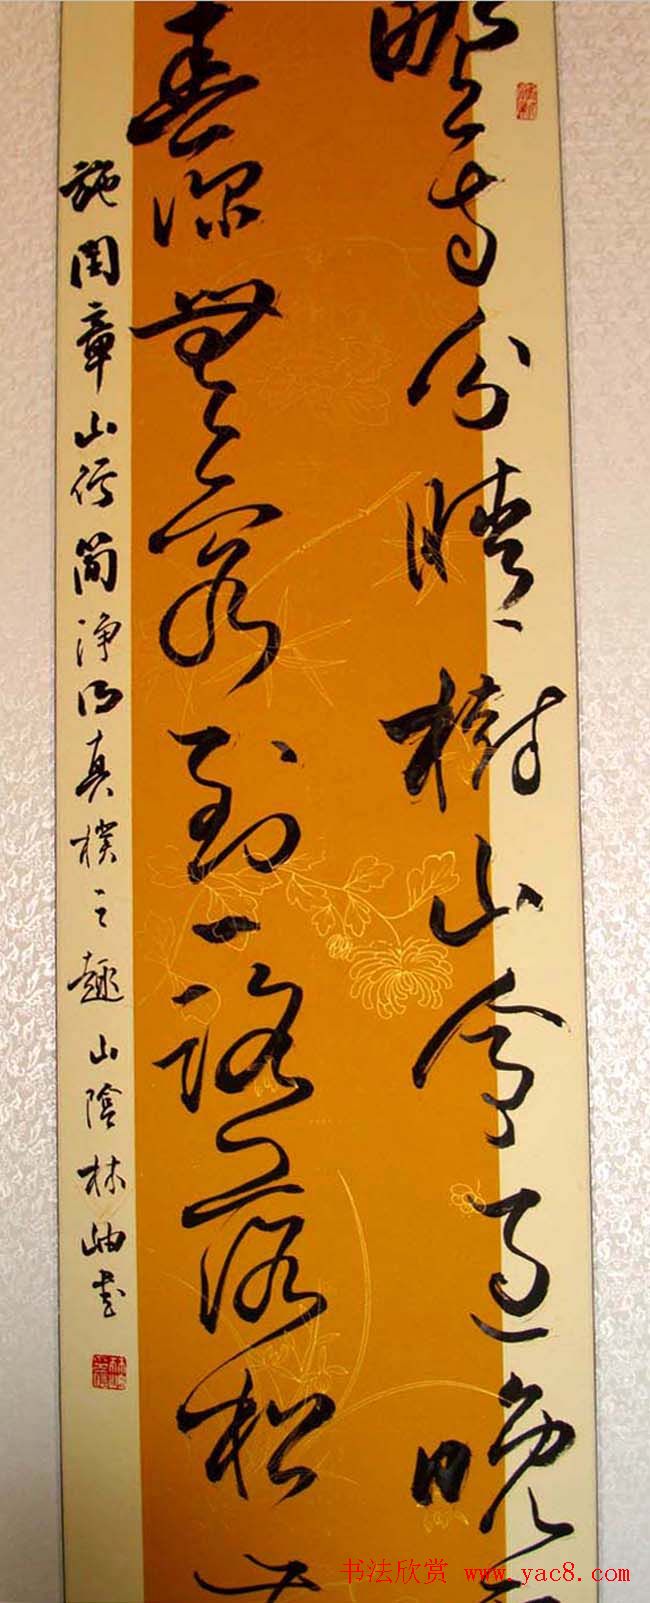 野寺分晴樹山亭過晚
春深無客到一路落松
施閏章山行簡淨得真樸之趣山陰林岫書
书法欣赏 www.yac8.com